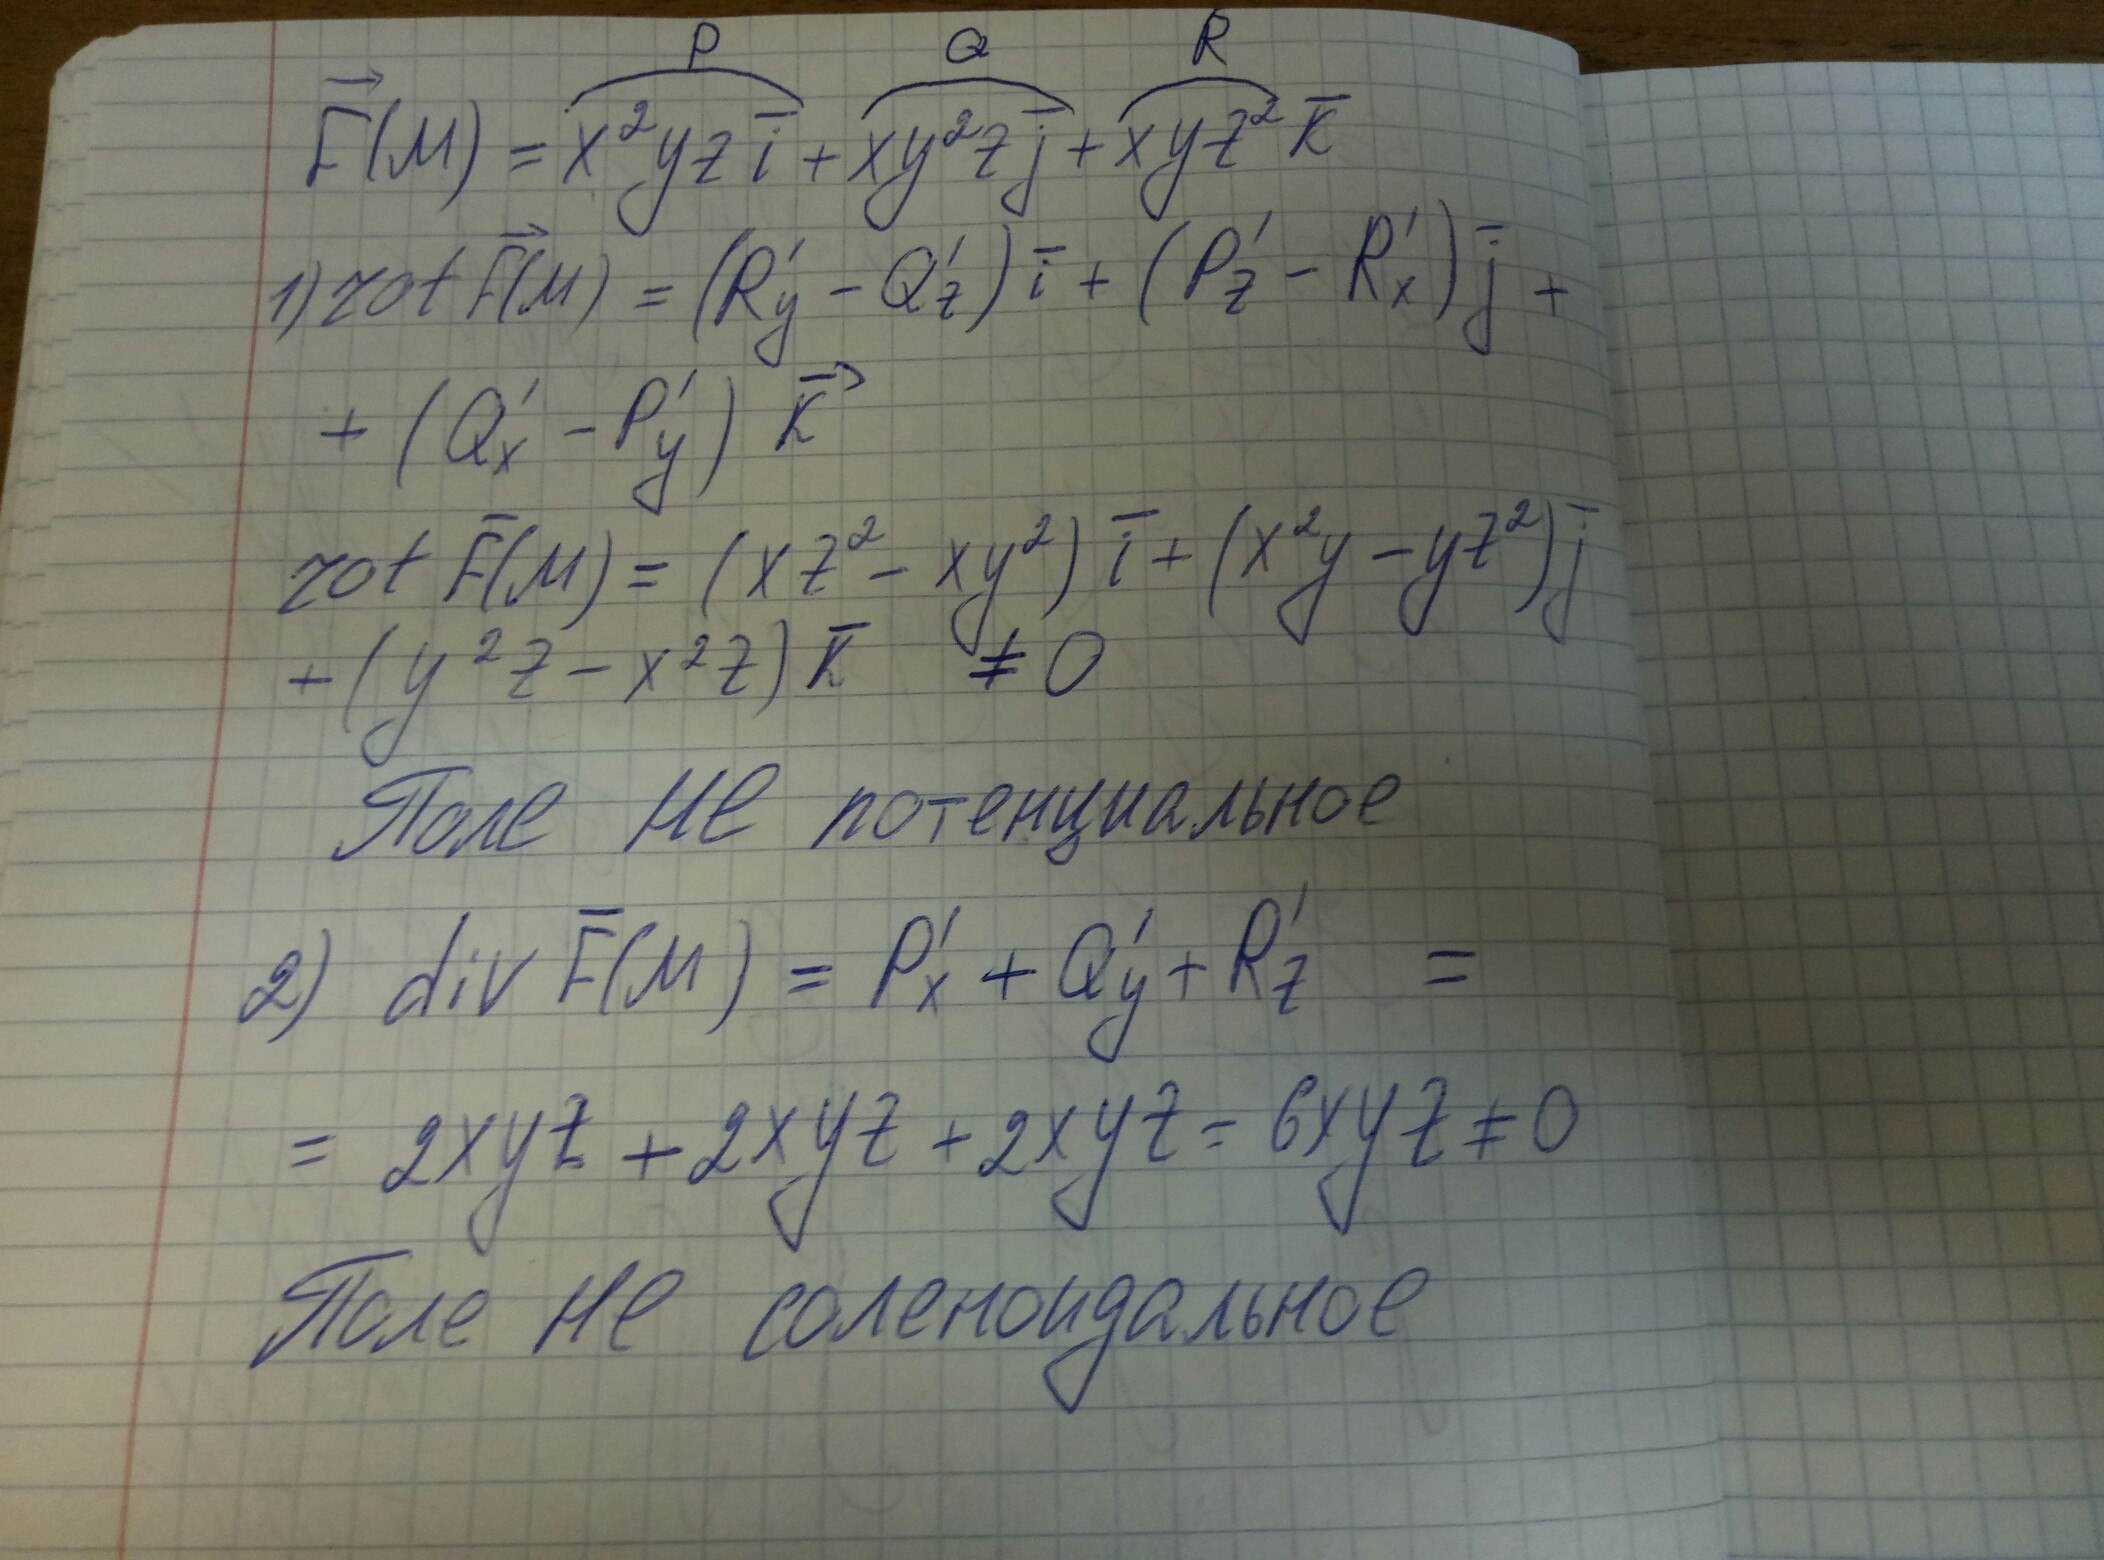 P Q R
F⃗(M) = x²yz i̅ + xy²z j̅ + xyz² k̅
1) rot F⃗(M) = (R'y − Q'z) i̅ + (P'z − R'x) j̅ +
+ (Q'x − P'y) k⃗
rot F̅(M) = (xz² − xy²) i̅ + (x²y − yz²) j̅
+ (y²z − x²z) k̅ ≠ 0
Поле не потенциальное
2) div F̅(M) = P'x + Q'y + R'z =
= 2xyz + 2xyz + 2xyz = 6xyz ≠ 0
Поле не соленоидальное